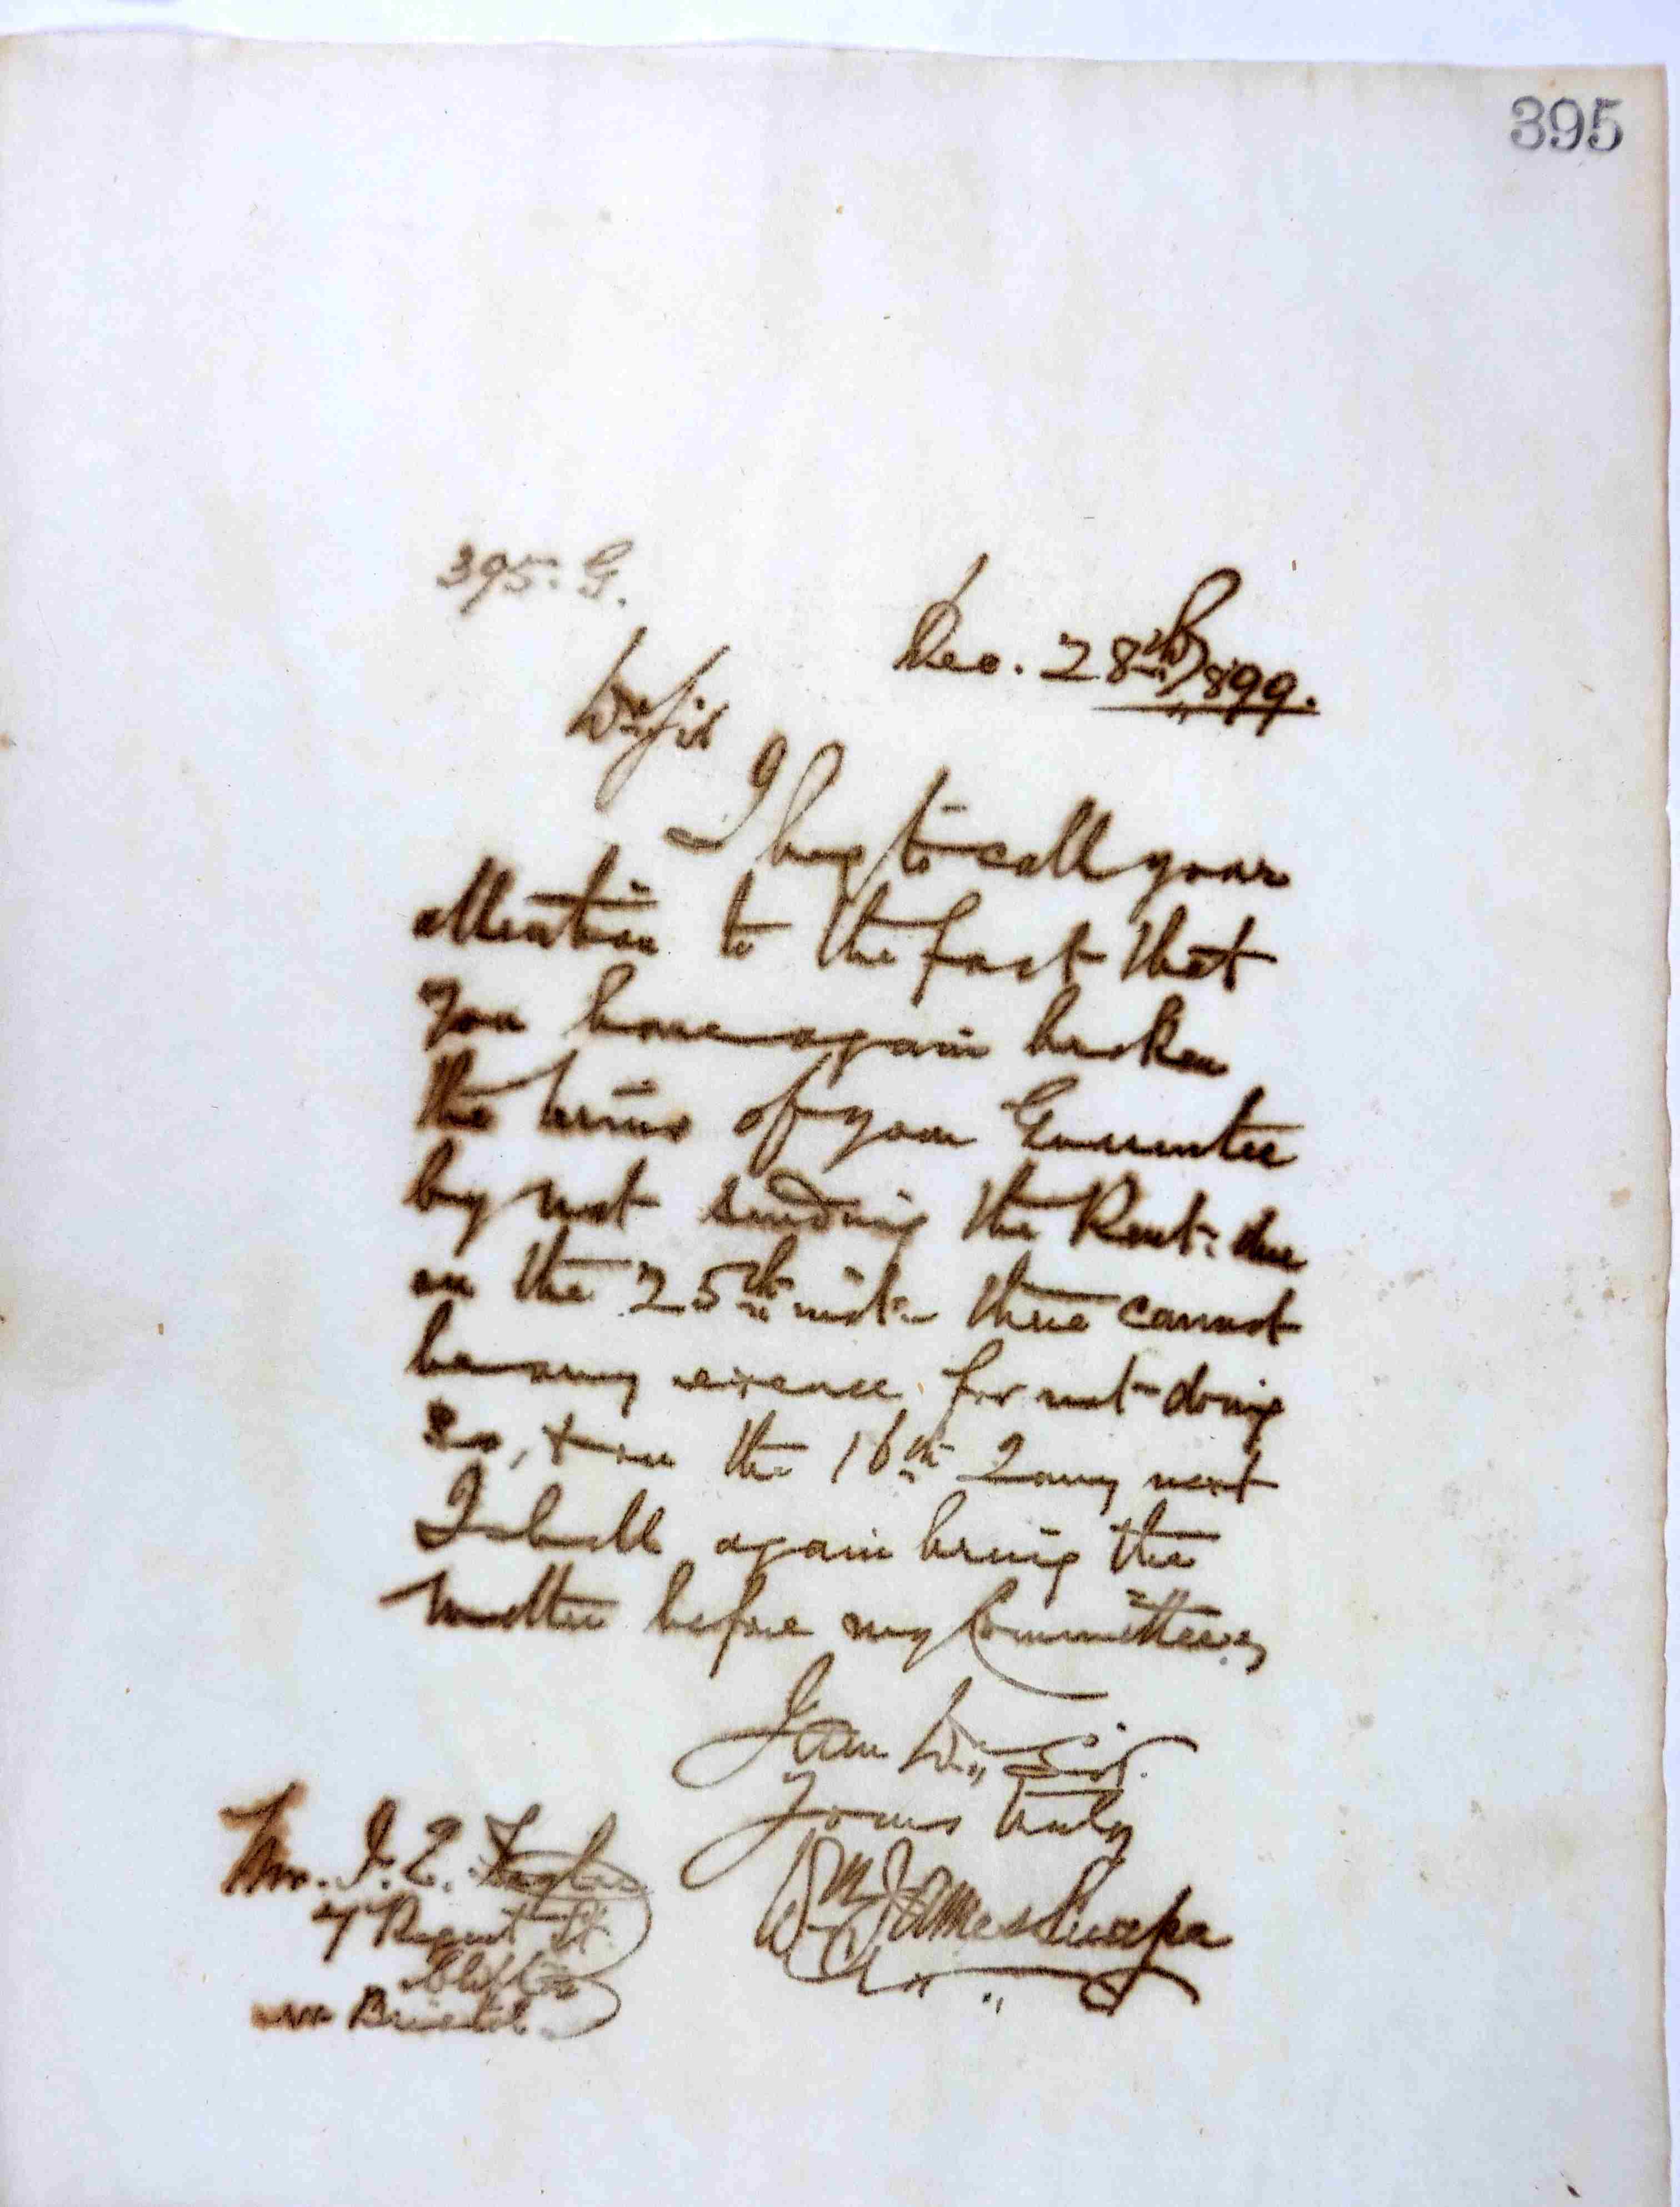 395
395. G.
Dec. 28th 1899.
Dr Sir
I beg to call your
attention to the fact that
you have again broken
the terms of your Guarantee
by not sending the Rent due
on the 25th inst. there cannot
be any excuse for not doing
so, & on the 16th Jany next
I shall again bring the
matter before my Committee,
I am Dr Sir
Yours truly
Wm James
Mr. J. E.
7 Regent St.
Clifton
Bristol.